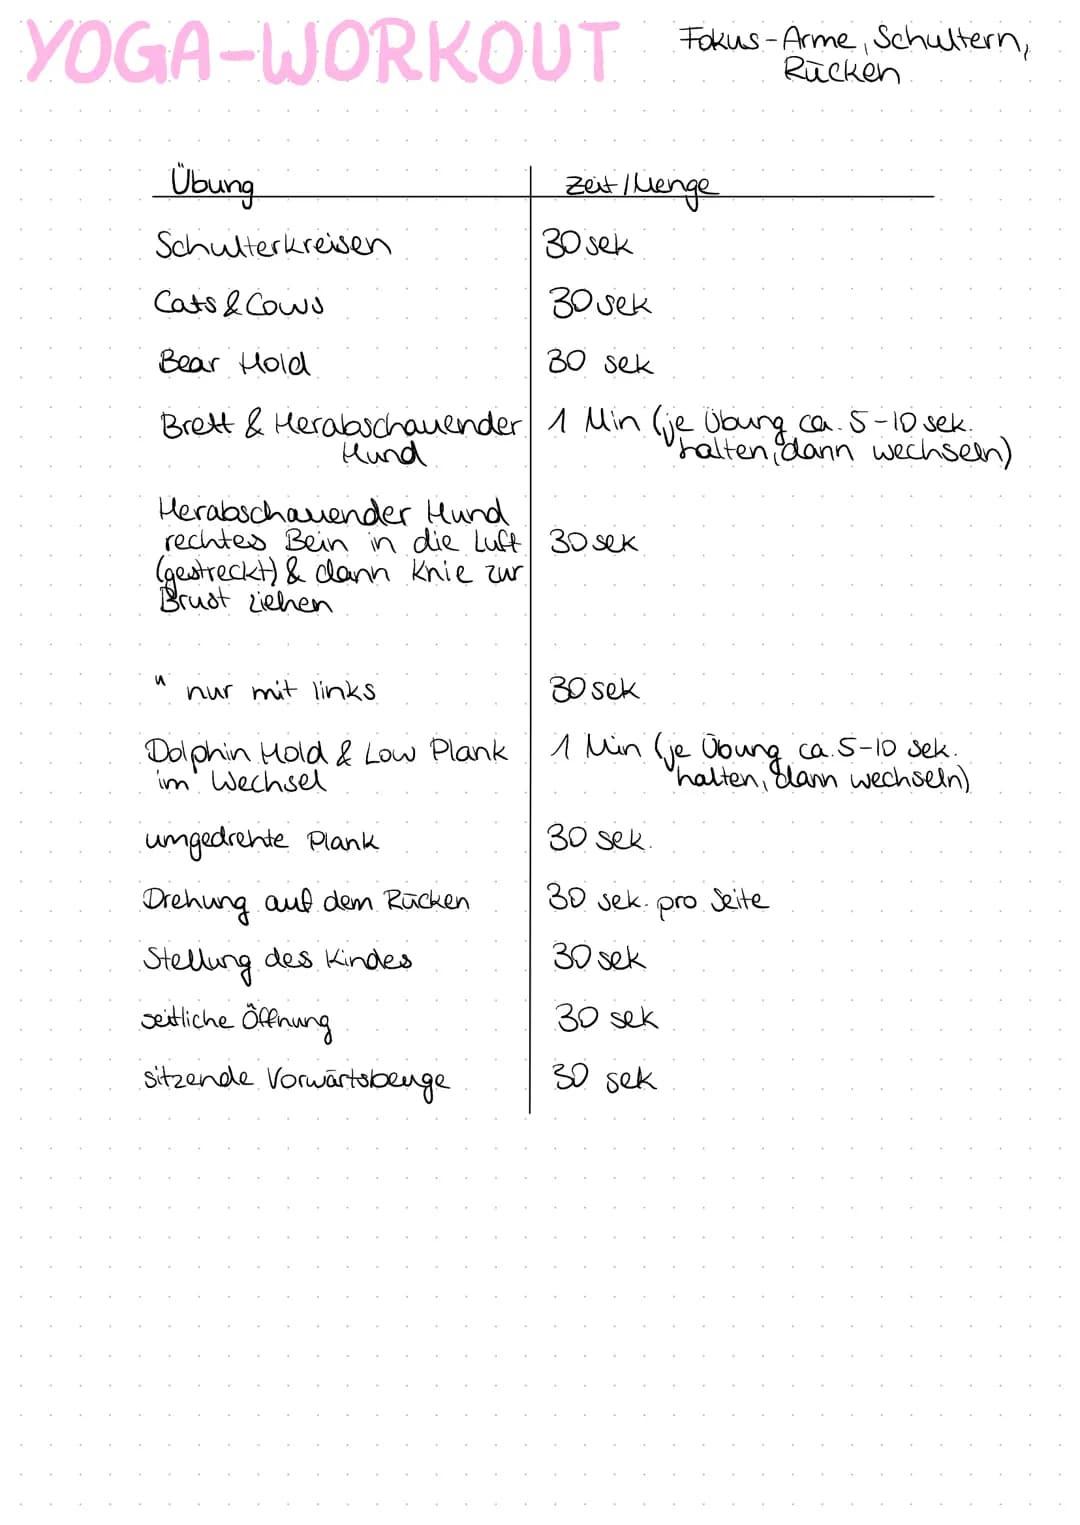 YOGA-WORKOUT
Fokus-Arme, Schultern,
Rücken
Übung
Zeit/Menge
Schulterkreisen
30 sek
Cats & Cows
30 sek
Bear Hold
30 sek
Brett & Herabschauender
Hund
1 Min (je Übung ca. 5-10 sek.
halten, dann wechseln)
Herabschauender Hund
rechtes Bein in die Luft
(gestreckt) & dann Knie zur
Brust ziehen
30 sek
" nur mit links
30 sek
Dolphin Hold & Low Plank
im Wechsel
1 Min (je Übung ca. 5-10 sek.
halten, dann wechseln)
umgedrehte Plank
30 sek.
Drehung auf dem Rücken
30 sek. pro Seite
Stellung des Kindes
30 sek
seitliche Öffnung
30 sek
sitzende Vorwärtsbeuge
30 sek